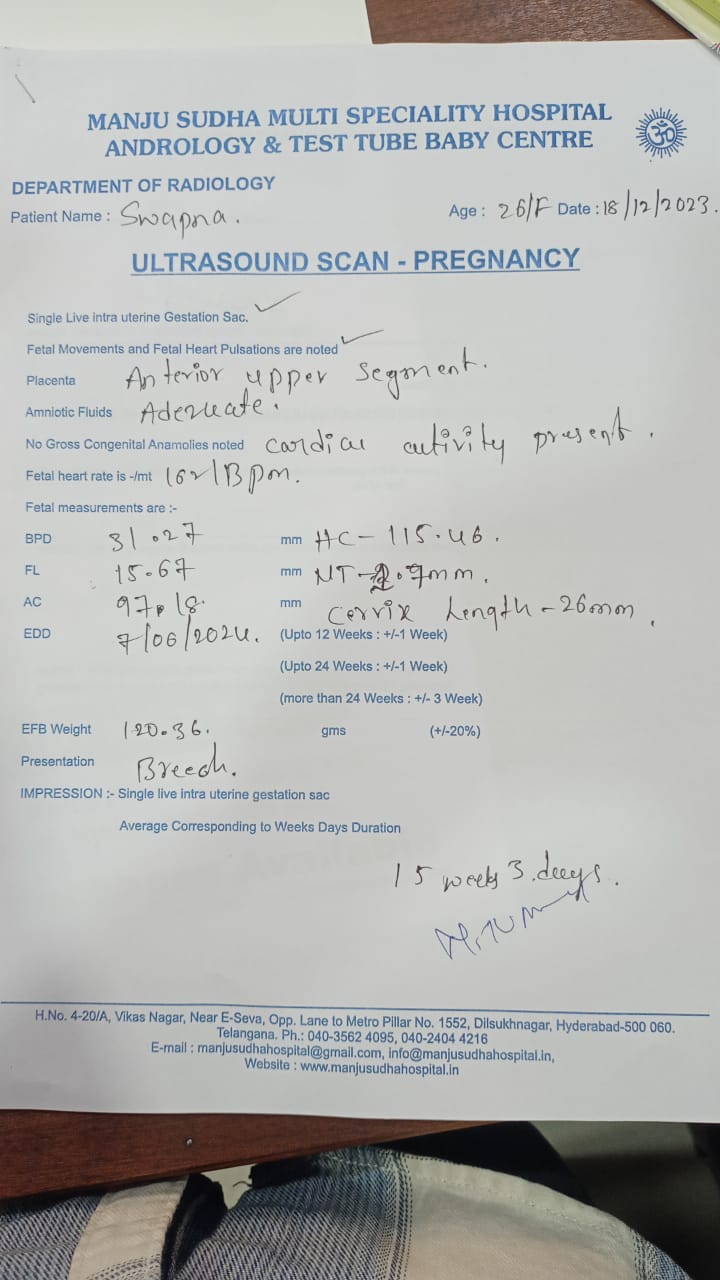 MANJU SUDHA MULTI SPECIALITY HOSPITAL
ANDROLOGY & TEST TUBE BABY CENTRE
ॐ
DEPARTMENT OF RADIOLOGY
Patient Name : Swapna. Age : 26/F Date : 18/12/2023.
ULTRASOUND SCAN - PREGNANCY
Single Live intra uterine Gestation Sac.
Fetal Movements and Fetal Heart Pulsations are noted
Placenta Anterior upper segment.
Amniotic Fluids Adequate.
No Gross Congenital Anamolies noted cardiac activity present.
Fetal heart rate is -/mt 162/Bpm.
Fetal measurements are :-
BPD 31.27 mm HC - 115.46.
FL 15.67 mm NT - mm.
AC 97.18. mm Cervix length - 26mm.
EDD 7/06/2024. (Upto 12 Weeks : +/-1 Week)
(Upto 24 Weeks : +/-1 Week)
(more than 24 Weeks : +/- 3 Week)
EFB Weight 120.36. gms (+/-20%)
Presentation Breech.
IMPRESSION :- Single live intra uterine gestation sac
Average Corresponding to Weeks Days Duration
15 weeks 3 days.
H.No. 4-20/A, Vikas Nagar, Near E-Seva, Opp. Lane to Metro Pillar No. 1552, Dilsukhnagar, Hyderabad-500 060.
Telangana. Ph.: 040-3562 4095, 040-2404 4216
E-mail : manjusudhahospital@gmail.com, info@manjusudhahospital.in,
Website : www.manjusudhahospital.in